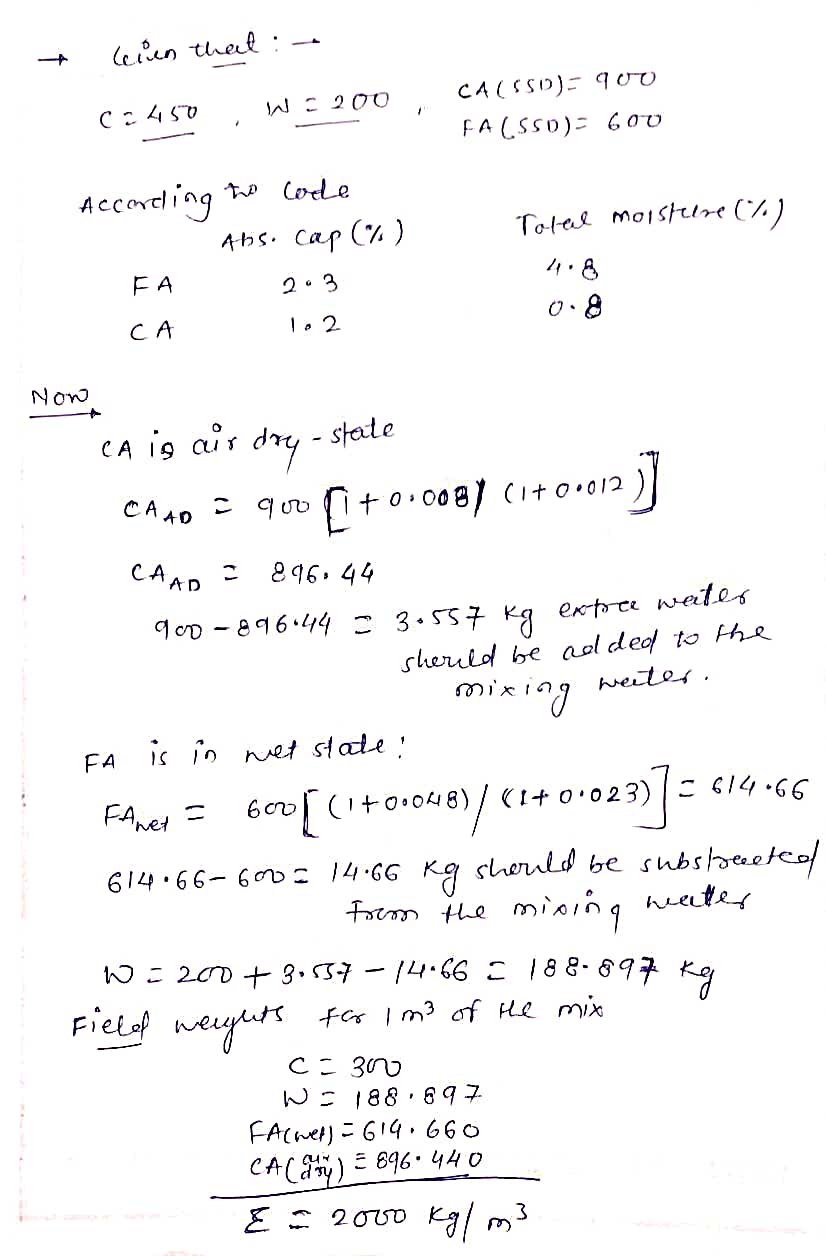 → Given that : →
C = 450 , W = 200 , CA (SSD) = 900
FA (SSD) = 600
According to Code
Abs. Cap (%) Total moisture (%)
FA 2.3 4.8
CA 1.2 0.8
Now
CA is air dry - state
CA AD = 900 [1 + 0.008) (1 + 0.012)]
CA AD = 896.44
900 - 896.44 = 3.557 kg extra water
should be added to the
mixing water.
FA is in wet state !
FAwet = 600 [(1 + 0.048) / (1 + 0.023)] = 614.66
614.66 - 600 = 14.66 kg should be substracted
from the mixing water
W = 200 + 3.557 - 14.66 = 188.897 kg
Field weights for 1 m³ of the mix
C = 300
W = 188.897
FA(wet) = 614.660
CA(air dry) = 896.440
Σ = 2000 kg/m³